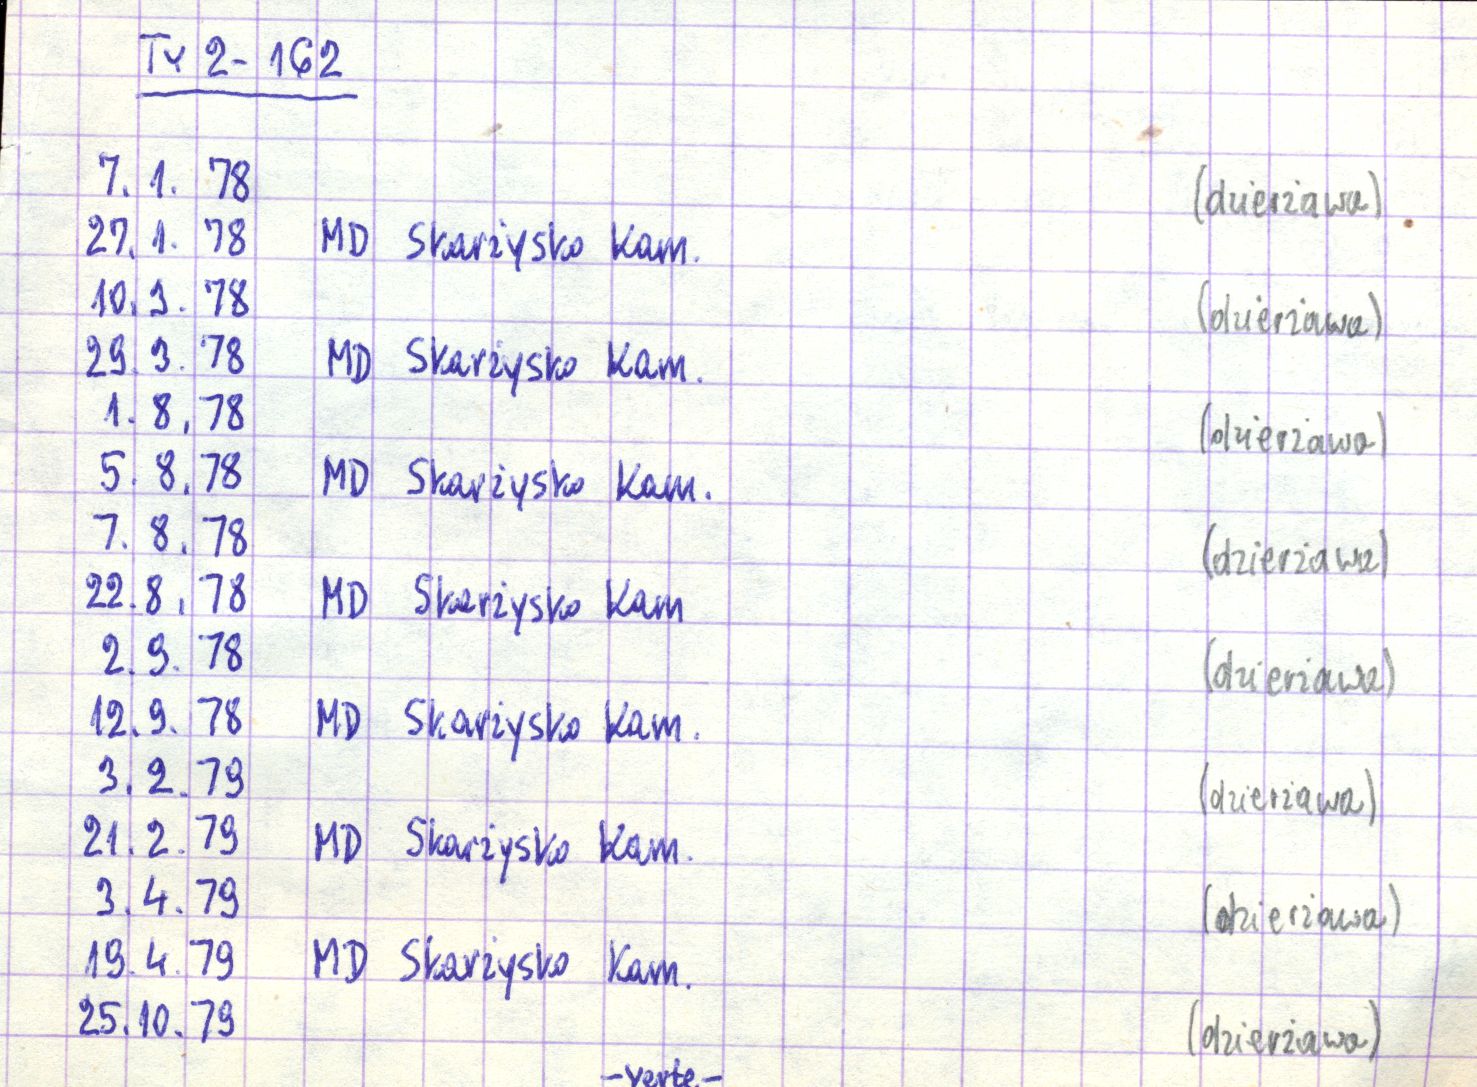 Ty 2-162
7. 1. 78 (dzierżawa)
27. 1. 78 MD Skarżysko Kam.
10. 3. 78 (dzierżawa)
29. 3. 78 MD Skarżysko Kam.
1. 8. 78 (dzierżawa)
5. 8. 78 MD Skarżysko Kam.
7. 8. 78 (dzierżawa)
22. 8. 78 MD Skarżysko Kam
2. 9. 78 (dzierżawa)
12. 9. 78 MD Skarżysko Kam.
3. 2. 79 (dzierżawa)
21. 2. 79 MD Skarżysko Kam.
3. 4. 79 (dzierżawa)
19. 4. 79 MD Skarżysko Kam.
25. 10. 79 (dzierżawa)
-verte-